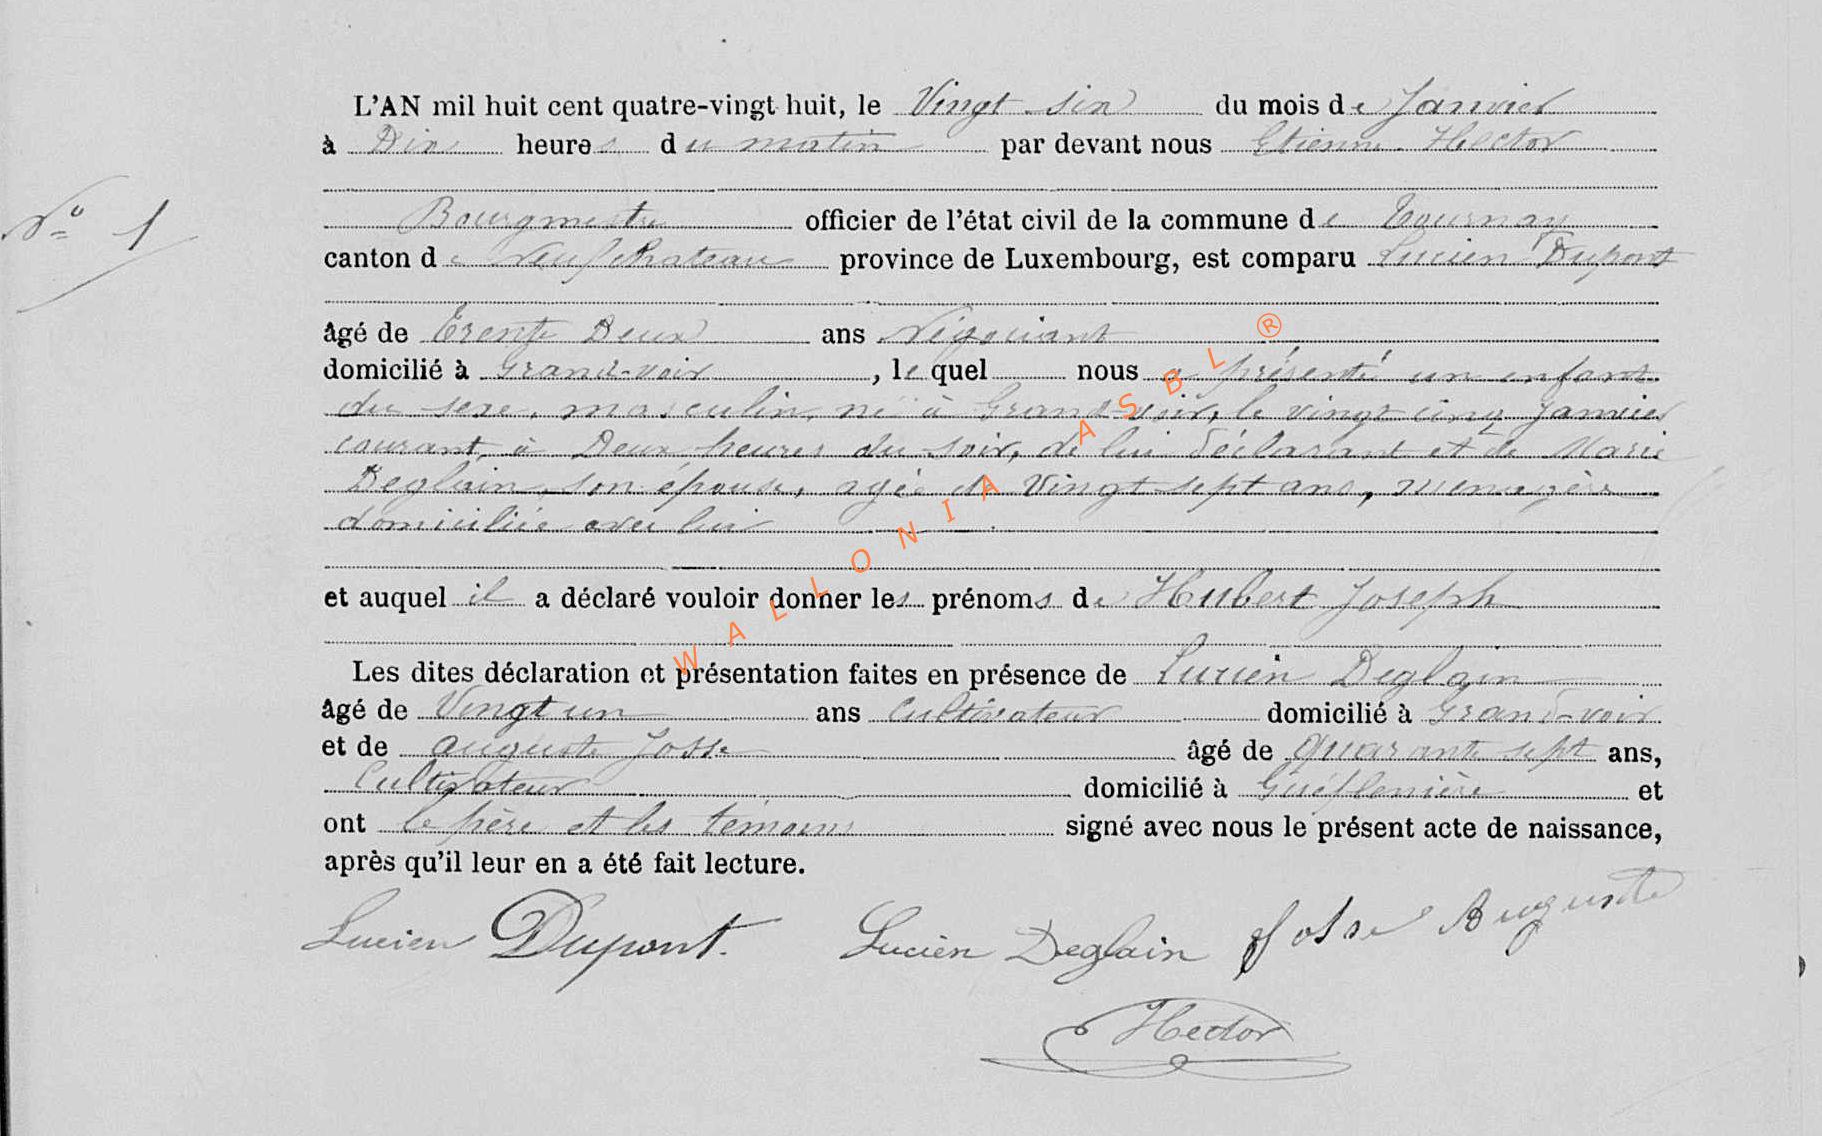 L'AN mil huit cent quatre-vingt huit, le Vingt six du mois de Janvier
à Dix heures du matin par devant nous Etienne Hector
Bourgmestre officier de l'état civil de la commune de Tournay
N° 1
canton de Neufchateau province de Luxembourg, est comparu Lucien Dupont
âgé de Trente Deux ans Négociant
domicilié à Grand-voir, le quel nous a présenté un enfant
du sexe, masculin, né à Grand-voir, le vingt cinq janvier
courant, à Deux heures du soir, de lui déclarant et de Marie
Deglain, son épouse, agée de Vingt sept ans, menagère
domiciliée avec lui
et auquel il a déclaré vouloir donner les prénoms de Hubert Joseph
Les dites déclaration et présentation faites en présence de Lucien Deglain
âgé de Vingt un ans Cultivateur domicilié à Grand-voir
et de auguste Josse âgé de quarante sept ans,
Cultivateur domicilié à et
ont le père et les témoins signé avec nous le présent acte de naissance,
après qu'il leur en a été fait lecture.
Lucien Dupont. Lucien Deglain Josse Auguste
Hector
WALLONIA ASBL ®